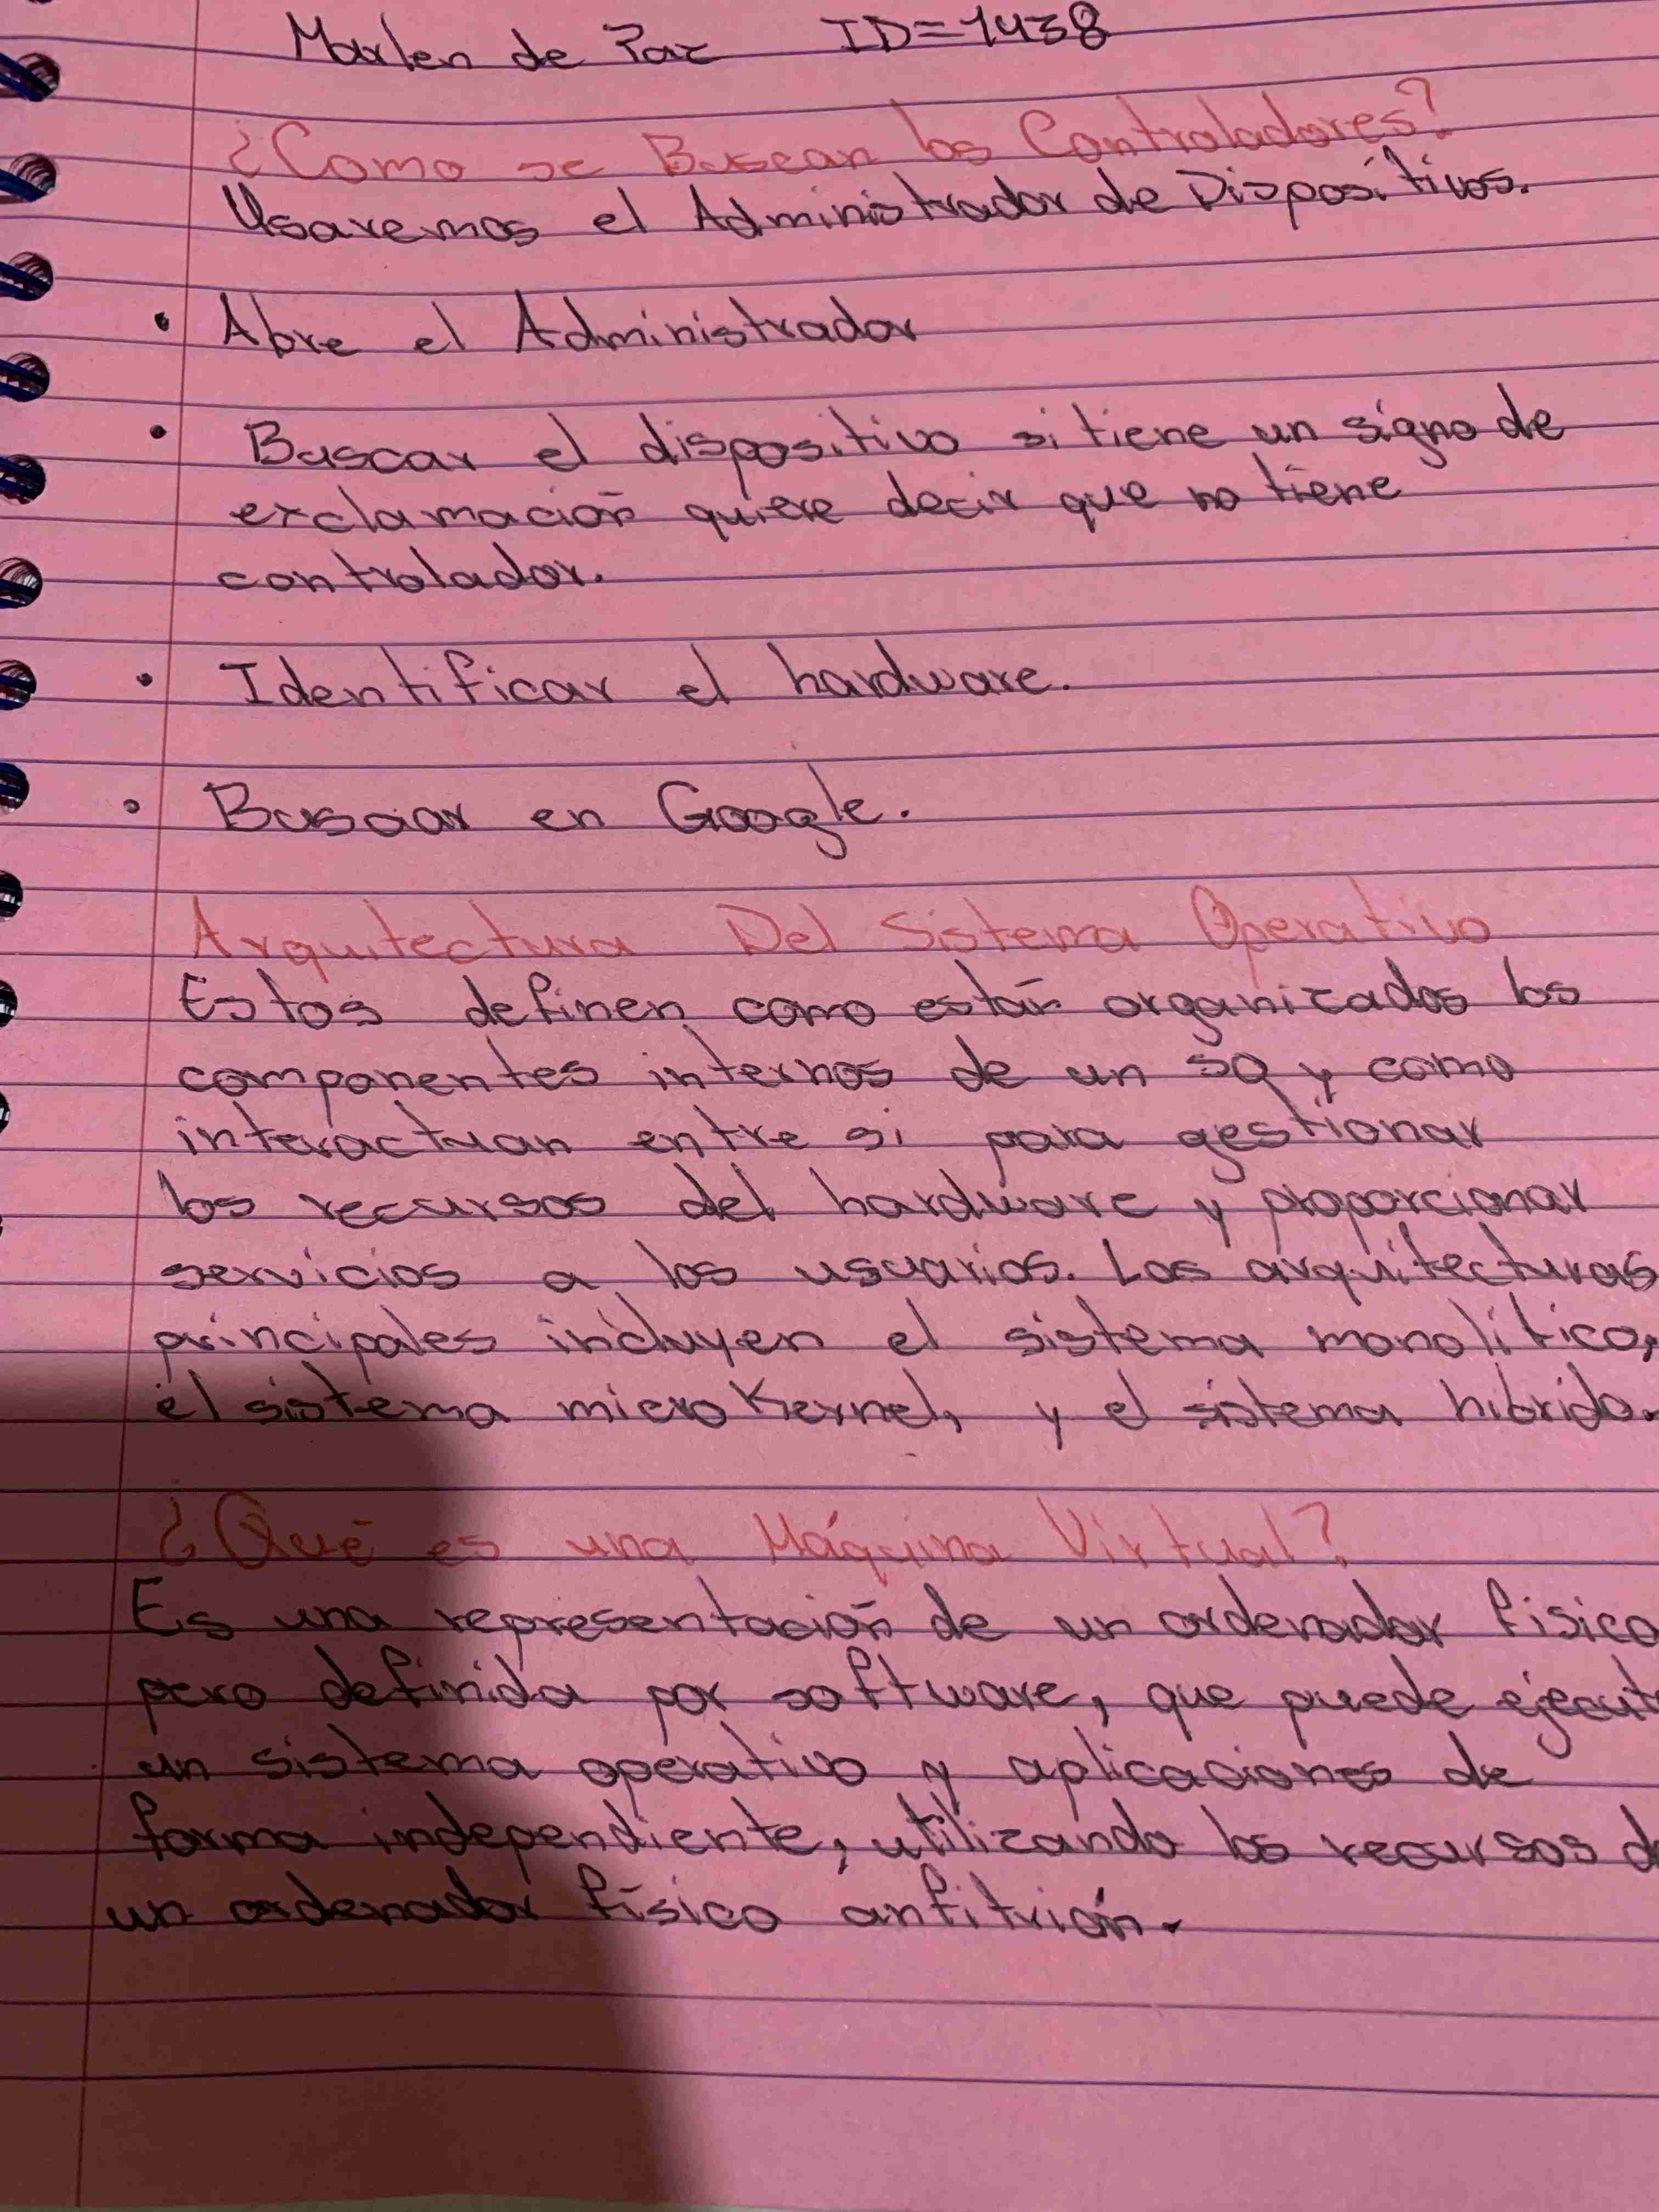 Marlen de Paz ID=1438
¿Como se Buscan los Controladores?
Usaremos el Administrador de Dispositivos.
• Abre el Administrador
• Buscar el dispositivo si tiene un signo de
exclamación quiere decir que no tiene
controlador.
• Identificar el hardware.
• Buscar en Google.
Arquitectura Del Sistema Operativo
Estos definen como están organizados los
componentes internos de un SO y como
interactuan entre si para gestionar
los recursos del hardware y proporcionar
servicios a los usuarios. Las arquitecturas
principales incluyen el sistema monolítico,
el sistema microKernel, y el sistema hibrido.
¿Qué es una Máquina Virtual?
Es una representación de un ordenador fisico
pero definida por software, que puede ejecut
un sistema operativo y aplicaciones de
forma independiente, utilizando los recursos d
un ordenador físico anfitrión.